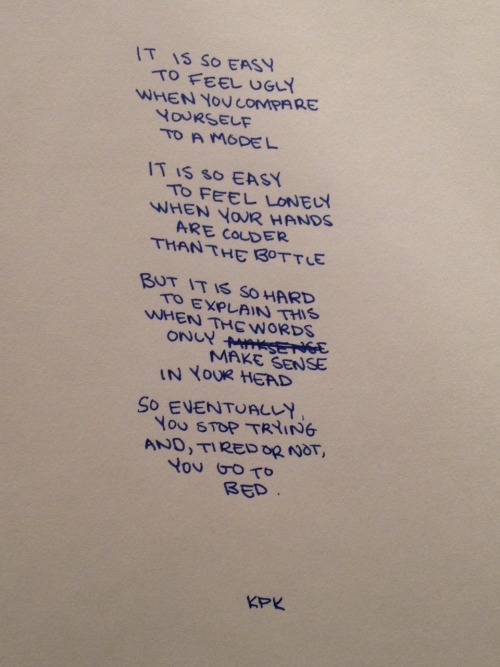 IT IS SO EASY
TO FEEL UGLY
WHEN YOU COMPARE
YOURSELF
TO A MODEL
IT IS SO EASY
TO FEEL LONELY
WHEN YOUR HANDS
ARE COLDER
THAN THE BOTTLE
BUT IT IS SO HARD
TO EXPLAIN THIS
WHEN THE WORDS
ONLY MAKSENSE
MAKE SENSE
IN YOUR HEAD
SO EVENTUALLY,
YOU STOP TRYING
AND, TIRED OR NOT,
YOU GO TO
BED.
KPK